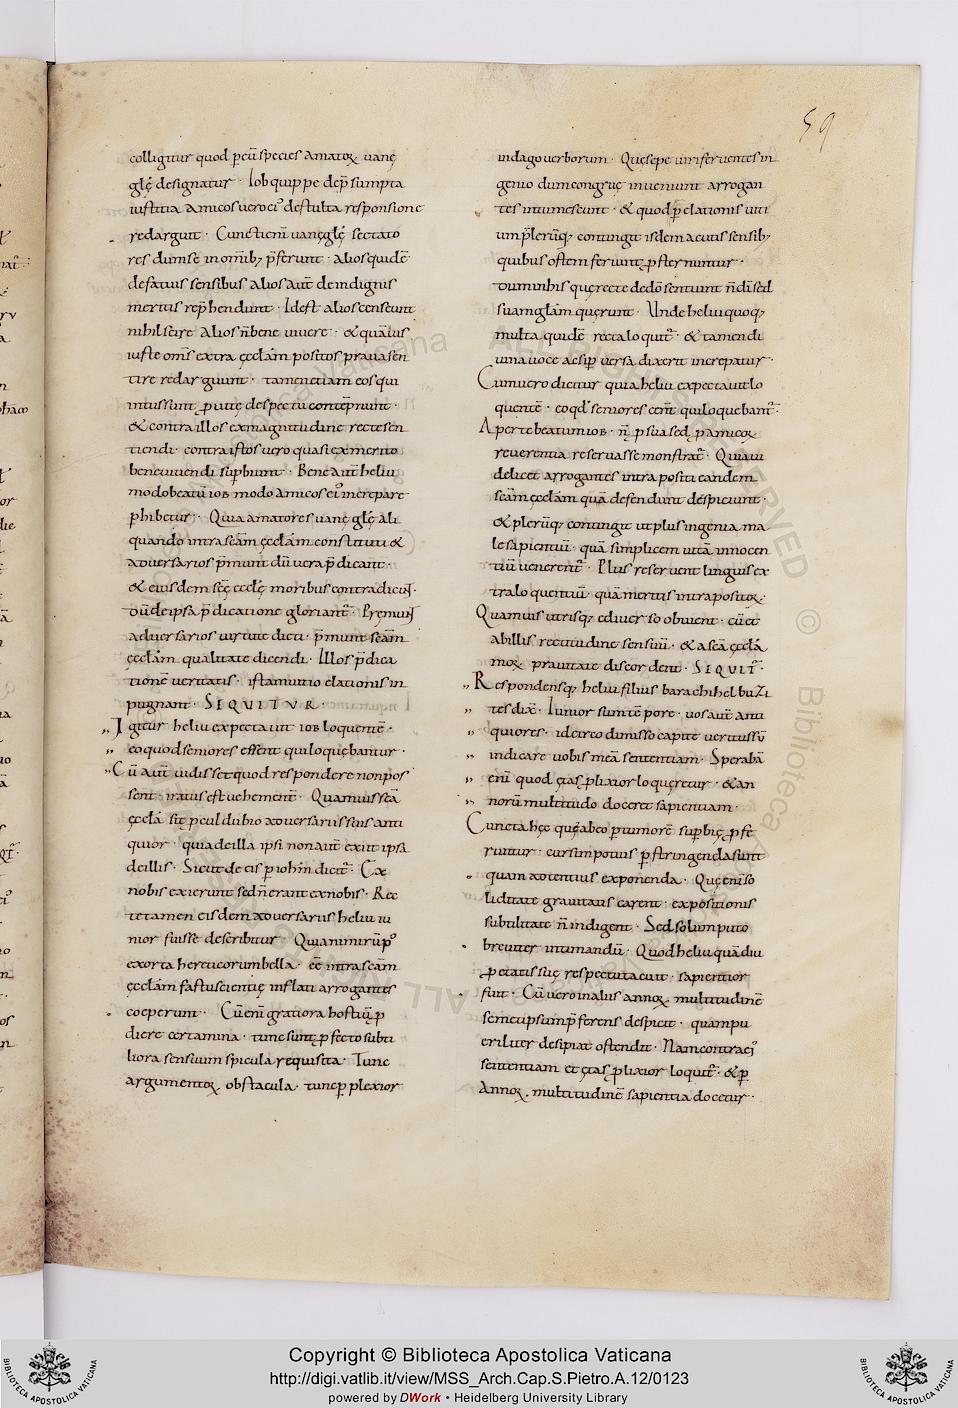 59
colligitur quod p eū species amatoꝝ uanę
glę designatur · Iob quippe dep̄sumpta
iustitia amicos uero ei' de stulta responsione
redarguit · Cuncti eni uanę glę sectato
res dum se in om̄ib; p̄ferunt · alios quidē
de fatuis sensibus alios aut̄ de indignis
meritis rep̄hendunt · Idest alios censeunt
nihil scire alios n̄ bene uiuere · & quāuis
iuste om̄s extra ęcclām positos praua sen
tire redarguunt · tamen etiam eos qui
intus sunt p uitę despectu contēpnunt ·
& contra illos ex magnitudine recte sen
tiendi · contra istos uero quasi ex merito
bene uiuendi sup̄biunt · Bene aut̄ heliu
modo beatū iob modo amicos ei' increpare
phibetur · Quia amatores uanę glę ali
quando intra scām ęcclām constituti &
aduersarios p̄munt dū uera p̄dicant ·
& eiusdem scę ecclę moribus contradicunt ·
dū de ipsa p̄dicatione gloriant̄ · Premunt
aduersarios uirtute dicti p̄munt scām
ęcclām qualitate dicendi · Illos p̄dica
tionē ueritatis · istam uitio elationis in
pugnant · SEQUITUR ·
Igitur heliu expectauit iob loquentē ·
eo quod seniores essent qui loquębantur ·
Cū aut̄ uidisset quod respondere non pos
sent · iratus est uehement̄ · Quamuis scā
ęcclā sit pcul dubio aduersariis suis anti
quior · quia de illa ipsi non aut̄ exiit ipsa
de illis · Sicut de eis p iohm dicit̄ · Ex
nobis exierunt sed n̄ erant ex nobis · Rec
te tamen eisdem aduersariis heliu iu
nior fuisse describitur · Quia nimirū p'
exorta hereticorum bella · eē intra scām
ęcclām fastu scientię inflati arrogantes
coeperunt · Cū eni grauiora hostiū p
diere certamina · tunc sunt pfecto subti
liora sensuum spicula requisita · Tunc
argumentoꝝ obstacula · tunc pplexior
indago uerborum · Quę sepe uiri feruentes in
genio dum congruę inueniunt arrogan
tes intumescunt · & quod p elationis uiti
um plerūq; contingit isdem acutis sensib;
quibus ostem feriunt p sternuntur ·
dum in his quę recte de dō sentiunt n̄ dī sed
suam glām querunt · Unde heliu quoq;
multa quidē recta loquit̄ · & tamen di
uina uoce ac si puersa dixerit increpatur ·
Cum uero dicitur quia heliu expectauit lo
quentē · eo qd' seniores eēnt qui loquebant̄ ·
Aperte beatum iob · n̄ p sua sed p amicoꝝ
reuerentia reseruasse monstrat̄ · Quia ui
delicet arrogantes intra positi eandem
scām ęcclām quā defendunt despiciunt ·
& plerūq; contingit ut plus ingenia ma
le sapientiū · quā simplicem uitā innocen
tiū uenerent̄ · Plus reseruent linguis ex
tra loquentiū · quā meritis intra positoꝝ ·
Quamuis utrisq; e diuerso obuient · cū et
ab illis rectitudine sensuū · & a scā ęcclā
moꝝ prauitate discordent · SEQUIT̄ ·
Respondensq; heliu filius barachihel buzi
tes dix̄ · Iunior sum tēpore · uos aut̄ anti
quiores · idcirco dimisso capite ueritus sū
indicare uobis meā sententiam · Sperabā
eni quod ętas plixior loquęretur · & an
norū multitudo doceret sapientiam ·
Cuncta hęc quę ab eo p tumorē sup̄bię pfe
runtur · cursim potius pstringenda sunt
quam adtentius exponenda · Quę eni so
liditate grauitatis carent · expositionis
subtilitate n̄ indigent · Sed solum puto
breuiter intimandū · Quod heliu quādiu
p etatis suę respectu tacuit · sapientior
fuit · Cū uero in aliis annoꝝ multitudinē
semetipsum p̄ferens despicit · quam pu
eriliter desipiat ostendit · Nam contra ei'
sententiam et ętas plixior loquit̄ · & p
annoꝝ multitudinē sapientia docetur ·
Copyright © Biblioteca Apostolica Vaticana
http://digi.vatlib.it/view/MSS_Arch.Cap.S.Pietro.A.12/0123
powered by DWork • Heidelberg University Library